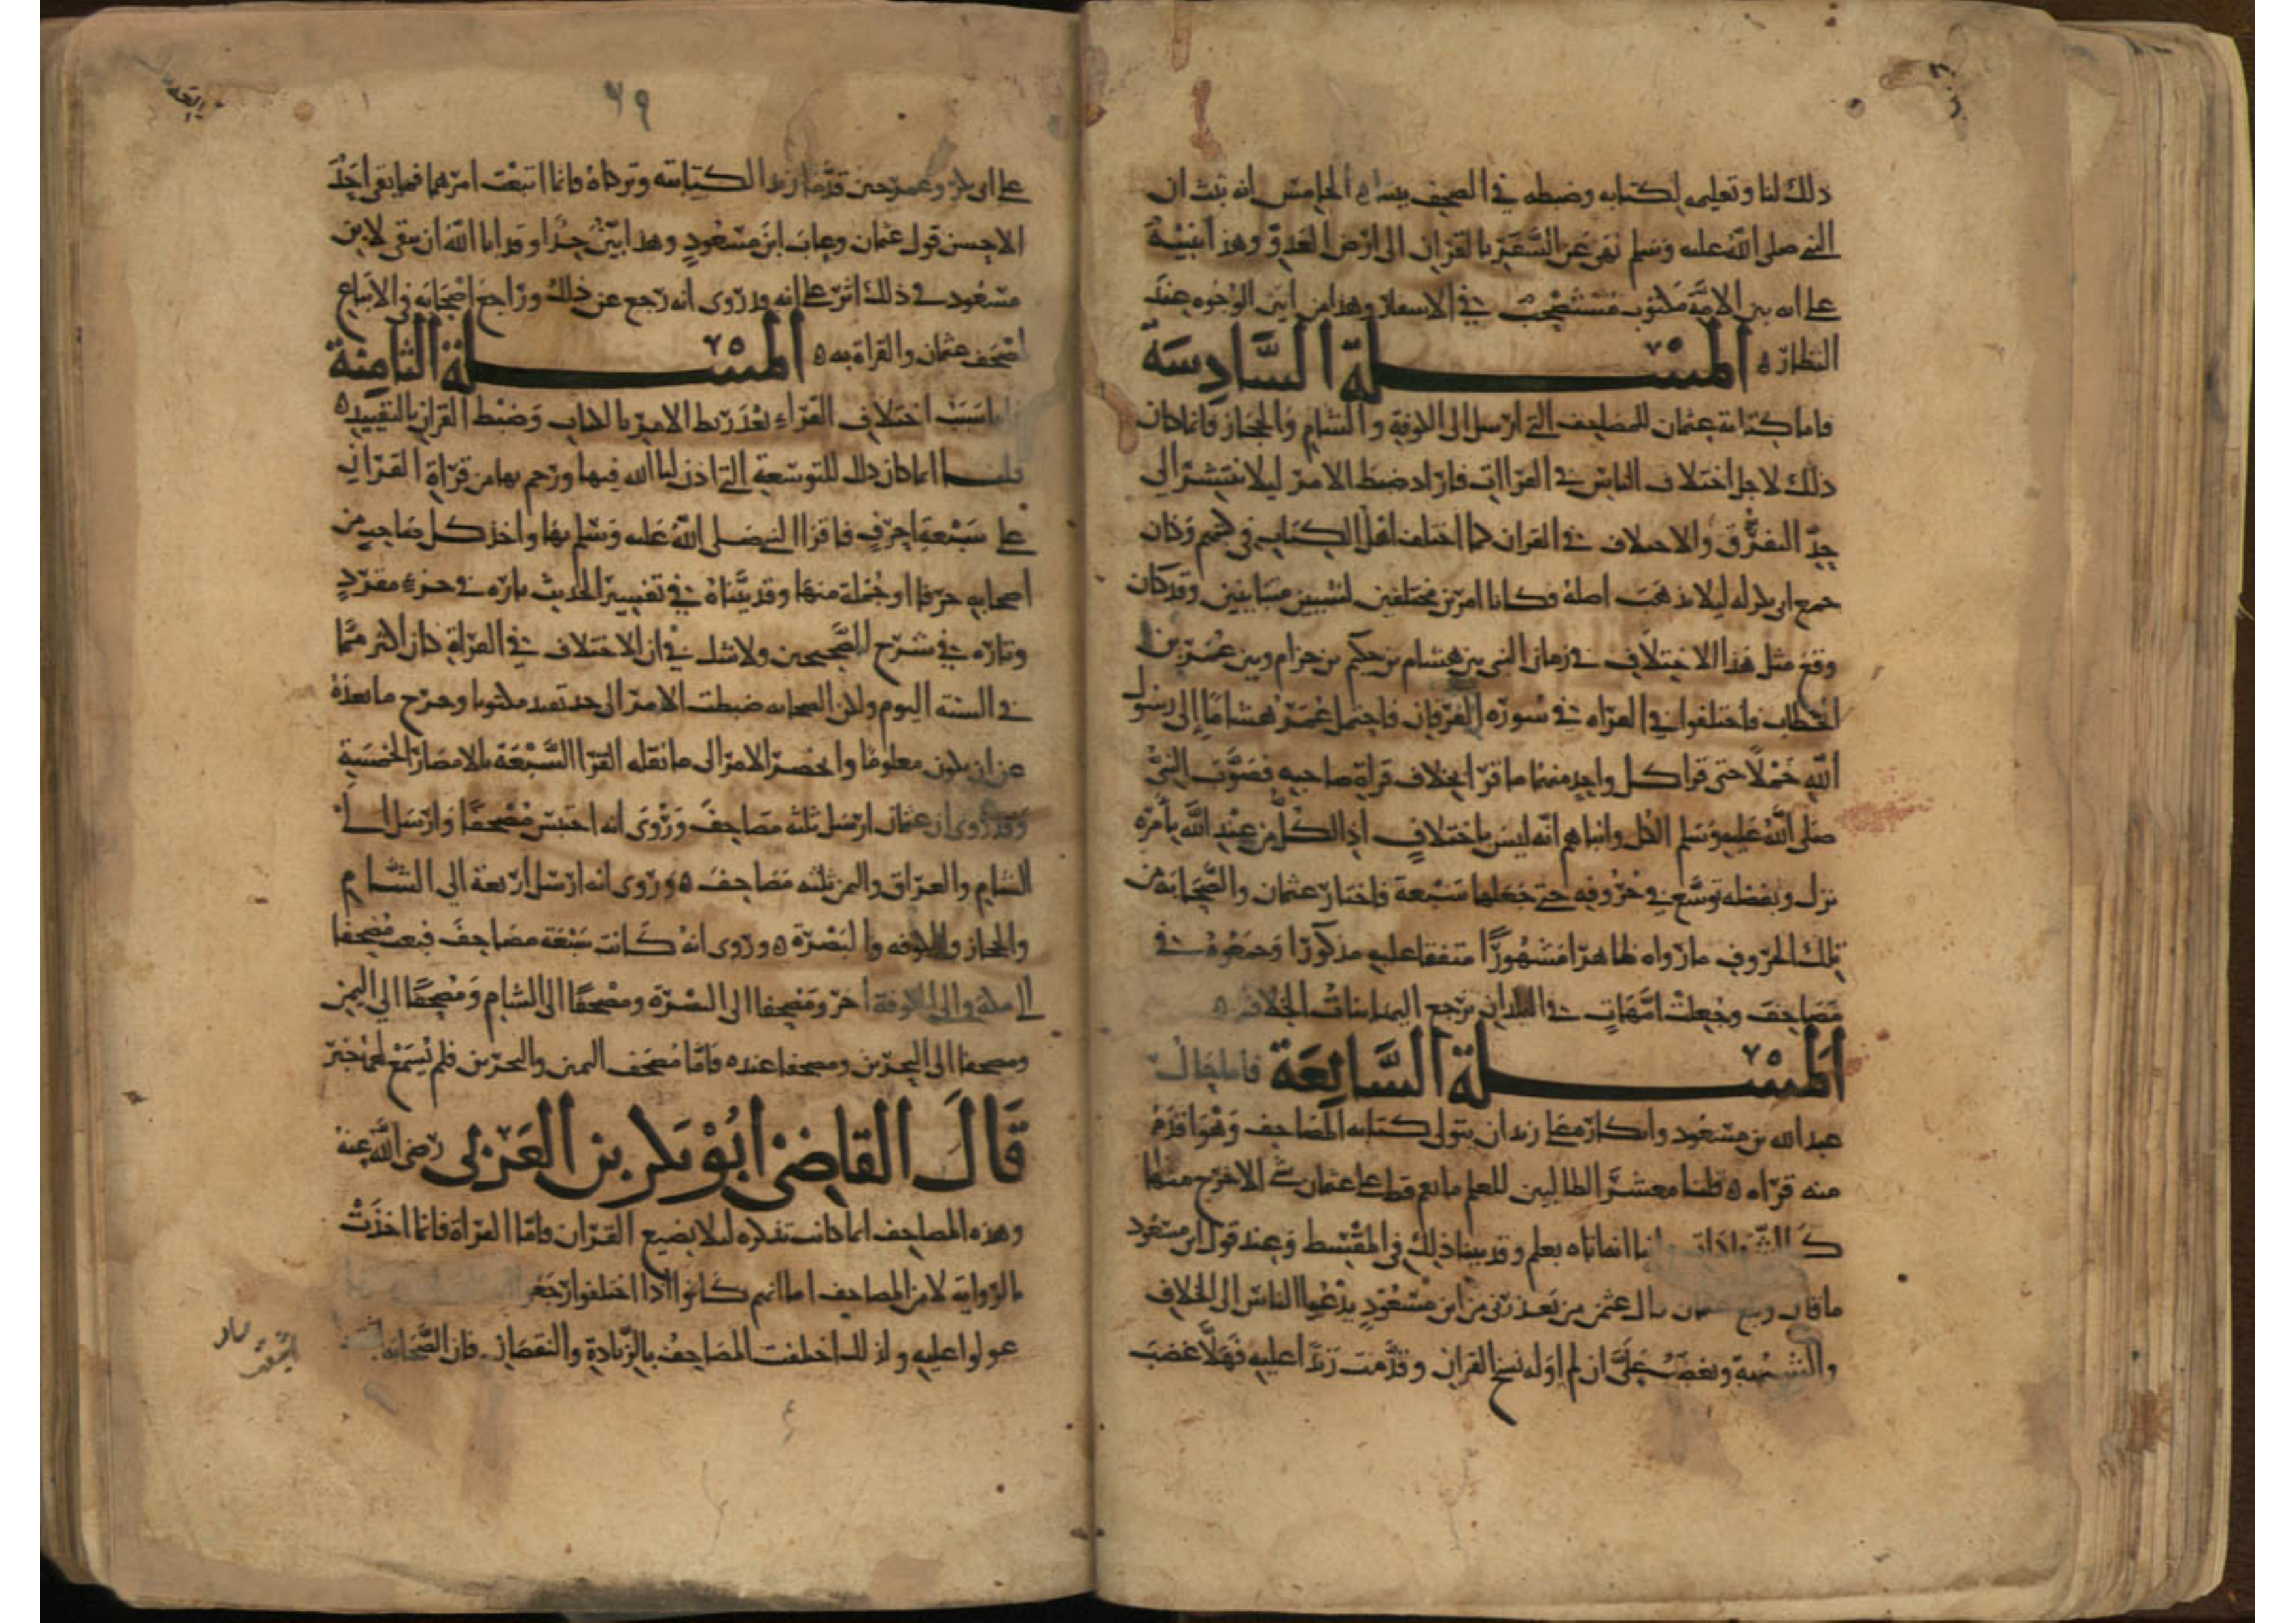 ذلك لنا وتعليم لكتابه وضبطه في الصحف الخامس انه ثبت ان
النبي صلى الله عليه وسلم نهى عن السفر بالقران الى ارض العدو وهذا تنبيه
على انه بين الامة مكتوب مستصحب في الاسفار وهذا من ابين الوجوه عند
النظار ه المسلة السادسة
فاما كتابة عثمان للمصاحف التي ارسل الى الكوفة والشام والحجاز فانما كان
ذلك لاجل اختلاف الناس في القراات فاراد ضبط الامر ليلا ينتشر الى
حد التفرق والاختلاف في القران كما اختلف اهل الكتاب في كتبهم وكان
جمع ابي بكر له ليلا يذهب اصله فكانا امرين مختلفين لسببين متباينين وقد كان
وقع مثل هذا الاختلاف في زمان النبي بين هشام بن حكيم بن حزام وبين عمر بن
الخطاب فاختلفوا في القراه في سورة الفرقان فاحتمل عمر هشاما إلى رسول
الله حملا حتى قرا كل واحد منهما ما قرا بخلاف قراة صاحبه فصوب النبي
صلى الله عليه وسلم الكل وانباهم انه ليس باختلاف اذ الكل من عند الله بامره
نزل وبفضله توسع في حروفه حتى جعلها سبعة فاختار عثمان والصحابة من
تلك الحروف ما رواه ظاهرا مشهورا متفقا عليه مذكورا وجمعوه في
مصاحف وجعلت امهات في البلدان ترجع اليها بنات الخلاف ه
المسلة السابعة فاما حال
عبد الله بن مسعود وانكاره على زيد ان يتولى كتابه المصاحف وهو اقدم
منه قراه ه قلنا معشر الطالبين للعلم ما نقم قط على عثمان شي الا خرج منها
وانبا انه اتاه بعلم وقد بينا ذلك في المقسط وعند قول ابن مسعود
ما قال عثمان قال عثمن من يعذرني من ابن مسعود يدعوا الناس الى الخلاف
والشبهة ويغضب علي ان لم اوله نسخ القران وقدمت زيدا عليه فهلا غضب
٧٩
على ابي بكر وعمر حين قدما زيدا لكتابته وتركاه وانما اتبعت امرهما فما بقي احد
الا حسن قول عثمان وعاب ابن مسعود وهذا بين جدا وقد ابا الله ان يبقى لابن
مسعود في ذلك اثر على انه قد روى انه رجع عن ذلك وراجع اصحابه في الاتباع
لمصحف عثمان والقراة به ه المسلة الثامنة
فاما سبب اختلاف القراء بعد ربط الامر بالكتاب وضبط القران بالتقييد ه
قلنا انما كان ذلك للتوسعة التي اذن لنا الله فيها ورحم بها من قراة القران
على سبعة احرف فاقرا النبي صلى الله عليه وسلم بها واخذ كل صاحب من
اصحابه حرفا او جملة منها وقد بيناه في تفسير الحديث تاره في جزء مفرد
وتاره في شرح الصحيحين ولا شك في ان الاختلاف في القراة كان اكثر مما
في السنة اليوم ولكن الصحابه ضبطت الامر الى حد يقيد مكتوبا وخرج ما بعده
عن ان يكون معلوما وانحصر الامر الى ما نقله القرا السبعة بالامصار الخمسة
وقد روى ان عثمان ارسل ثلثه مصاحف وروى انه احتبس مصحفا وارسل الى
الشام والعراق واليمن ثلثه مصاحف ه وروى انه ارسل اربعة الى الشام
والحجاز والكوفه والبصرة ه وروى انه كانت سبعة مصاحف فبعث مصحفا
الى مكة والى الكوفة اخر ومصحفا الى البصرة ومصحفا الى الشام ومصحفا الى اليمن
ومصحفا الى البحرين ومصحفا عنده فاما مصحف اليمن والبحرين فلم يسمع لهما خبر
قال القاضي ابو بكر بن العربي رضي الله عنه
وهذه المصاحف انما كانت تذكره ليلا يضيع القران فاما القراة فانما اخذت
بالروايه لا من المصاحف اما انهم كانوا اذا اختلفوا رجعوا
عولوا عليه ولذلك اختلفت المصاحف بالزيادة والنقصان فان الصحابة